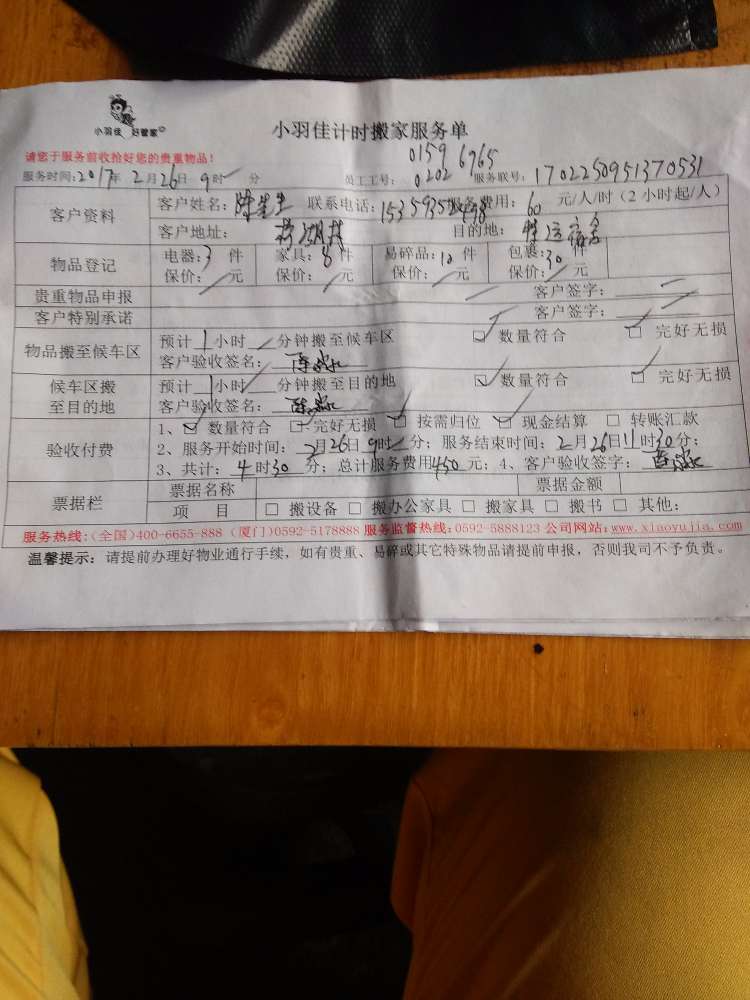 小羽佳 好管家
小羽佳计时搬家服务单
请您于服务前收拾好您的贵重物品！
0159 6965
服务时间：2017年 2月26日 9时 分 员工工号： 0202 服务联号：1702250951370531
客户资料 客户姓名：陈先生 联系电话： 服务费用：60 元/人/时（2小时起/人）
客户地址： 目的地：
物品登记 电器：3 件 家具：8 件 易碎品：10 件 包裹：30 件
保价： 元 保价： 元 保价： 元 保价： 元
贵重物品申报 客户签字：
客户特别承诺 客户签字：
物品搬至候车区 预计 1 小时 分钟搬至候车区 ☑ 数量符合 ☑ 完好无损
客户验收签名：
候车区搬至目的地 预计 1 小时 分钟搬至目的地 ☑ 数量符合 ☑ 完好无损
客户验收签名：
验收付费 1、☑ 数量符合 ☑ 完好无损 ☑ 按需归位 ☑ 现金结算 □ 转账汇款
2、服务开始时间：2月26日9时 分；服务结束时间：2月26日11时30分；
3、共计：4时30 分；总计服务费用450元；4、客户验收签字：
票据栏 票据名称 票据金额
项 目 □ 搬设备 □ 搬办公家具 □ 搬家具 □ 搬书 □ 其他：
服务热线：(全国)400-6655-888 (厦门)0592-5178888 服务监督热线：0592-5888123 公司网站：www.xiaoyujia.com
温馨提示：请提前办理好物业通行手续，如有贵重、易碎或其它特殊物品请提前申报，否则我司不予负责。